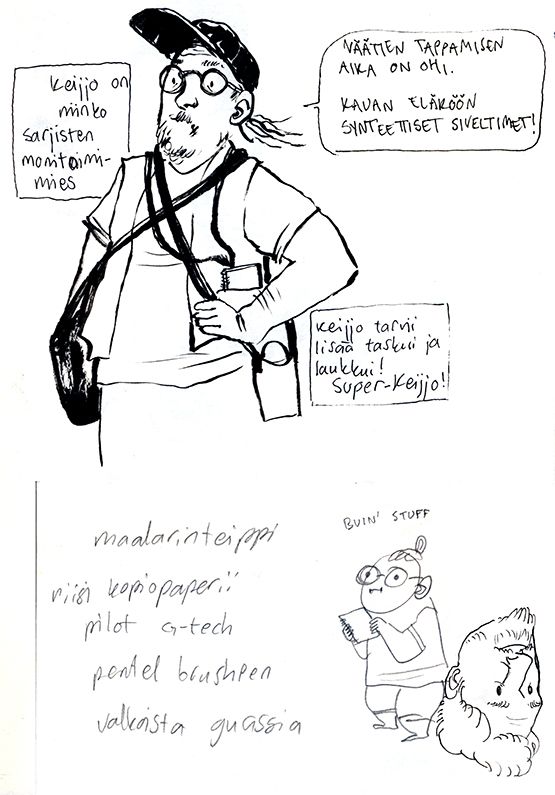 keijjo on
minko
sarjisten
monitoimi-
mies
NÄÄTIEN TAPPAMISEN
AIKA ON OHI.
KAUAN ELÄKÖÖN
SYNTEETTISET SIVELTIMET!
keijjo tarvii
lisää taskui ja
laukkui!
Super-Keijjo!
maalarinteippi
riisi kopiopaperii
pilot G-tech
pentel brushpen
valkoista guassia
BUIN' STUFF